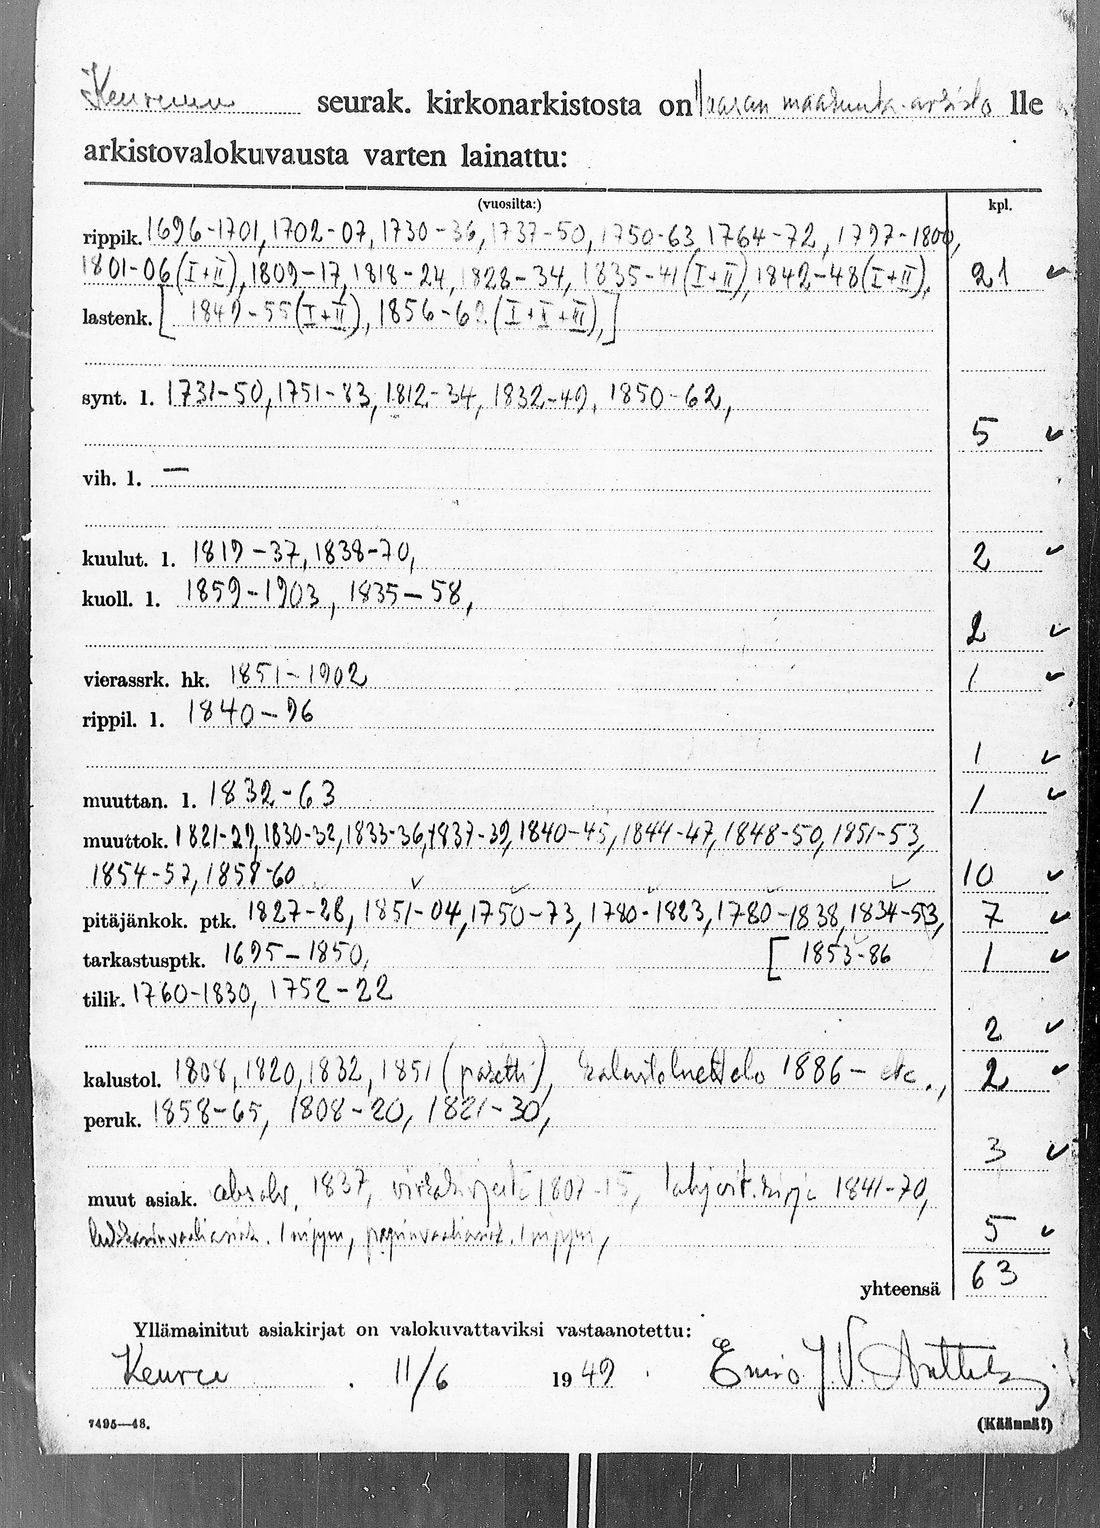 Keuruun seurak. kirkonarkistosta on Vaasan maakunta-arkisto lle
arkistovalokuvausta varten lainattu:
(vuosilta:) kpl.
rippik. 1696-1701, 1702-07, 1730-36, 1737-50, 1750-63, 1764-72, 1797-1800,
1801-06 (I+II), 1809-17, 1818-24, 1828-34, 1835-41 (I+II), 1842-48 (I+II), 21 ✓
lastenk. [ 1849-55 (I+II), 1856-62 (I+II+III), ]
synt. l. 1731-50, 1751-83, 1812-34, 1832-49, 1850-62,
5 ✓
vih. l. —
kuulut. l. 1819-37, 1838-70, 2 ✓
kuoll. l. 1859-1903, 1835-58,
2 ✓
vierassrk. hk. 1851-1902 1 ✓
rippil. l. 1840-96
1 ✓
muuttan. l. 1832-63 1 ✓
muuttok. 1821-29, 1830-32, 1833-36, 1837-39, 1840-45, 1844-47, 1848-50, 1851-53,
1854-57, 1858-60 10 ✓
pitäjänkok. ptk. 1827-28, 1851-04, 1750-73, 1780-1823, 1780-1838, 1834-53, 7 ✓
tarkastusptk. 1695-1850, [ 1853-86 1 ✓
tilik. 1760-1830, 1752-22
2 ✓
kalustol. 1808, 1820, 1832, 1851 (paketti), kalustoluettelo 1886- etc., 2 ✓
peruk. 1858-65, 1808-20, 1821-30,
3 ✓
muut asiak. absolv. 1837, virkakirjeitä 1807-15, lahjoit.kirja 1841-70,
lukkarinvaaliasiak. 1 nippu, papinvaaliasiak. 1 nippu, 5 ✓
yhteensä 63
Yllämainitut asiakirjat on valokuvattaviksi vastaanotettu:
Keuruu 11/6 1949. J. V.
7495—48. (Käännä!)